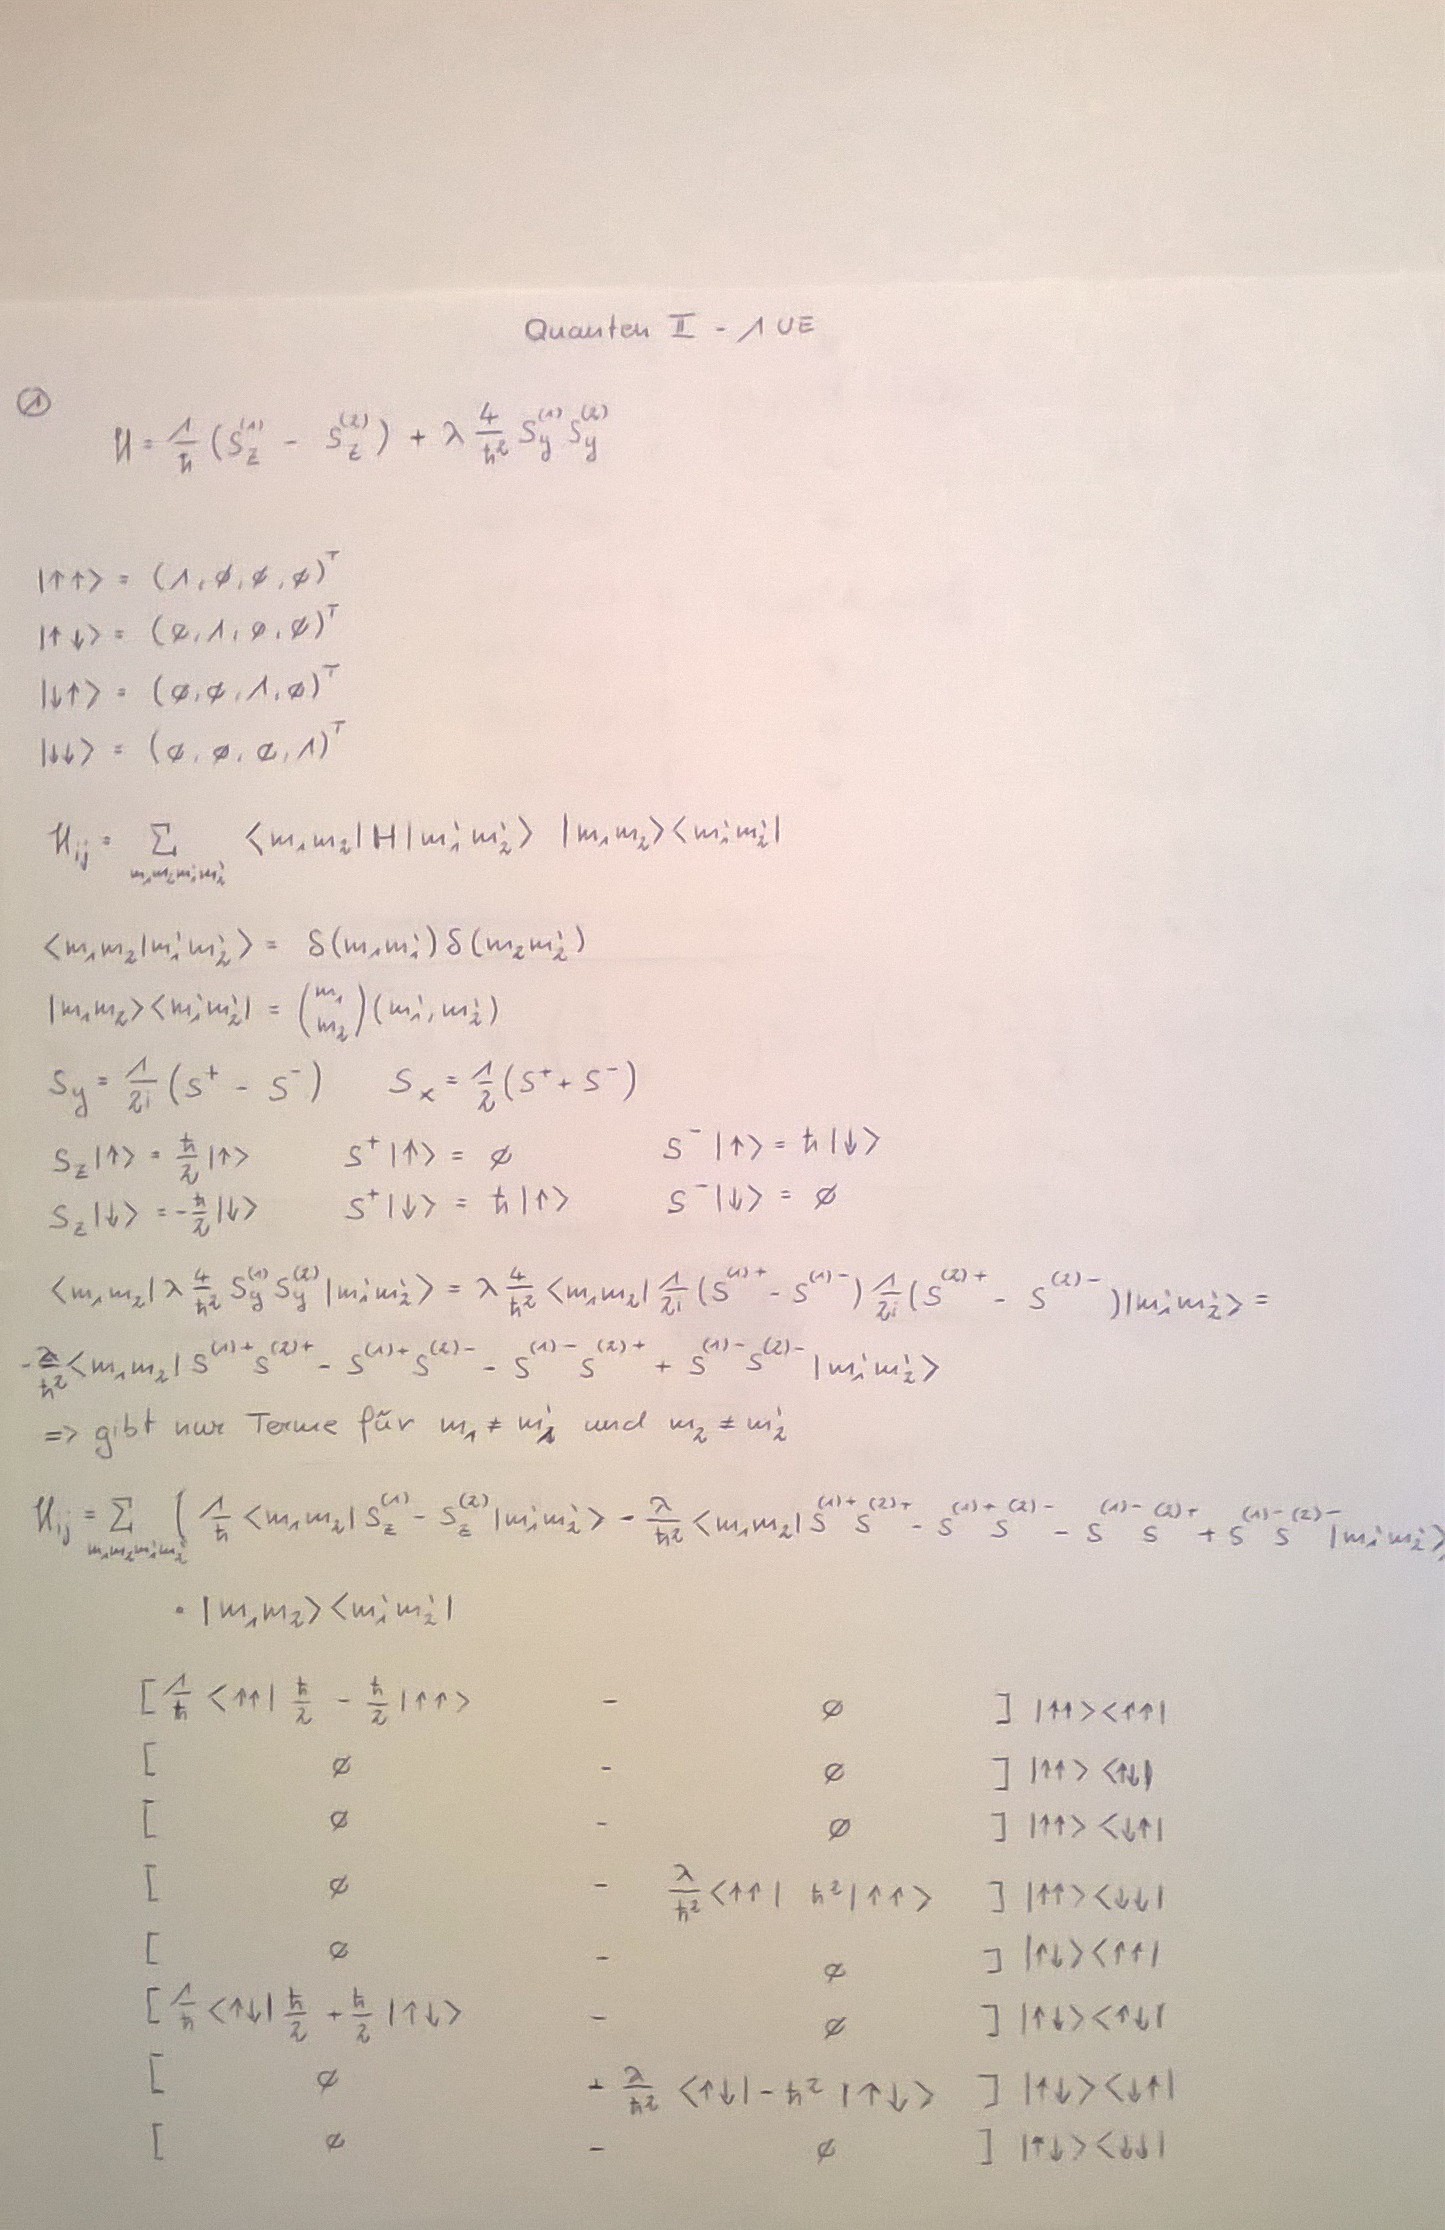 Quanten II - 1 UE
①
H = 1/ħ (S_z^(1) - S_z^(2)) + λ 4/ħ² S_y^(1) S_y^(2)
|↑↑> = (1, ø, ø, ø)^T
|↑↓> = (ø, 1, ø, ø)^T
|↓↑> = (ø, ø, 1, ø)^T
|↓↓> = (ø, ø, ø, 1)^T
H_ij = Σ_{m₁m₂m₁'m₂'} <m₁m₂|H|m₁'m₂'> |m₁m₂><m₁'m₂'|
<m₁m₂|m₁'m₂'> = δ(m₁m₁')δ(m₂m₂')
|m₁m₂><m₁'m₂'| = (m₁ m₂)(m₁', m₂')
S_y = 1/2i (S⁺ - S⁻) S_x = 1/2 (S⁺ + S⁻)
S_z|↑> = ħ/2 |↑> S⁺|↑> = ø S⁻|↑> = ħ|↓>
S_z|↓> = -ħ/2 |↓> S⁺|↓> = ħ|↑> S⁻|↓> = ø
<m₁m₂|λ 4/ħ² S_y^(1) S_y^(2)|m₁'m₂'> = λ 4/ħ² <m₁m₂| 1/2i (S^(1)+ - S^(1)-) 1/2i (S^(2)+ - S^(2)-)|m₁'m₂'> =
-λ/ħ² <m₁m₂| S^(1)+ S^(2)+ - S^(1)+ S^(2)- - S^(1)- S^(2)+ + S^(1)- S^(2)- |m₁'m₂'>
=> gibt nur Terme für m₁ ≠ m₁' und m₂ ≠ m₂'
H_ij = Σ_{m₁m₂m₁'m₂'} ( 1/ħ <m₁m₂| S_z^(1) - S_z^(2) |m₁'m₂'> - λ/ħ² <m₁m₂| S^(1)+ S^(2)+ - S^(1)+ S^(2)- - S^(1)- S^(2)+ + S^(1)- S^(2)- |m₁'m₂'>)
• |m₁m₂><m₁'m₂'|
[ 1/ħ <↑↑| ħ/2 - ħ/2 |↑↑> - ø ] |↑↑><↑↑|
[ ø - ø ] |↑↑><↑↓|
[ ø - ø ] |↑↑><↓↑|
[ ø - λ/ħ² <↑↑| ħ² |↑↑> ] |↑↑><↓↓|
[ ø - ø ] |↑↓><↑↑|
[ 1/ħ <↑↓| ħ/2 + ħ/2 |↑↓> - ø ] |↑↓><↑↓|
[ ø + λ/ħ² <↑↓| -ħ² |↑↓> ] |↑↓><↓↑|
[ ø - ø ] |↑↓><↓↓|